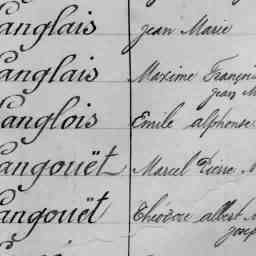 anglais Jean Marie
anglais Maxime François
Jean M
anglois Emile alphonse
angouët Marcel Pierre M
angouët Théodore albert M
Joseph